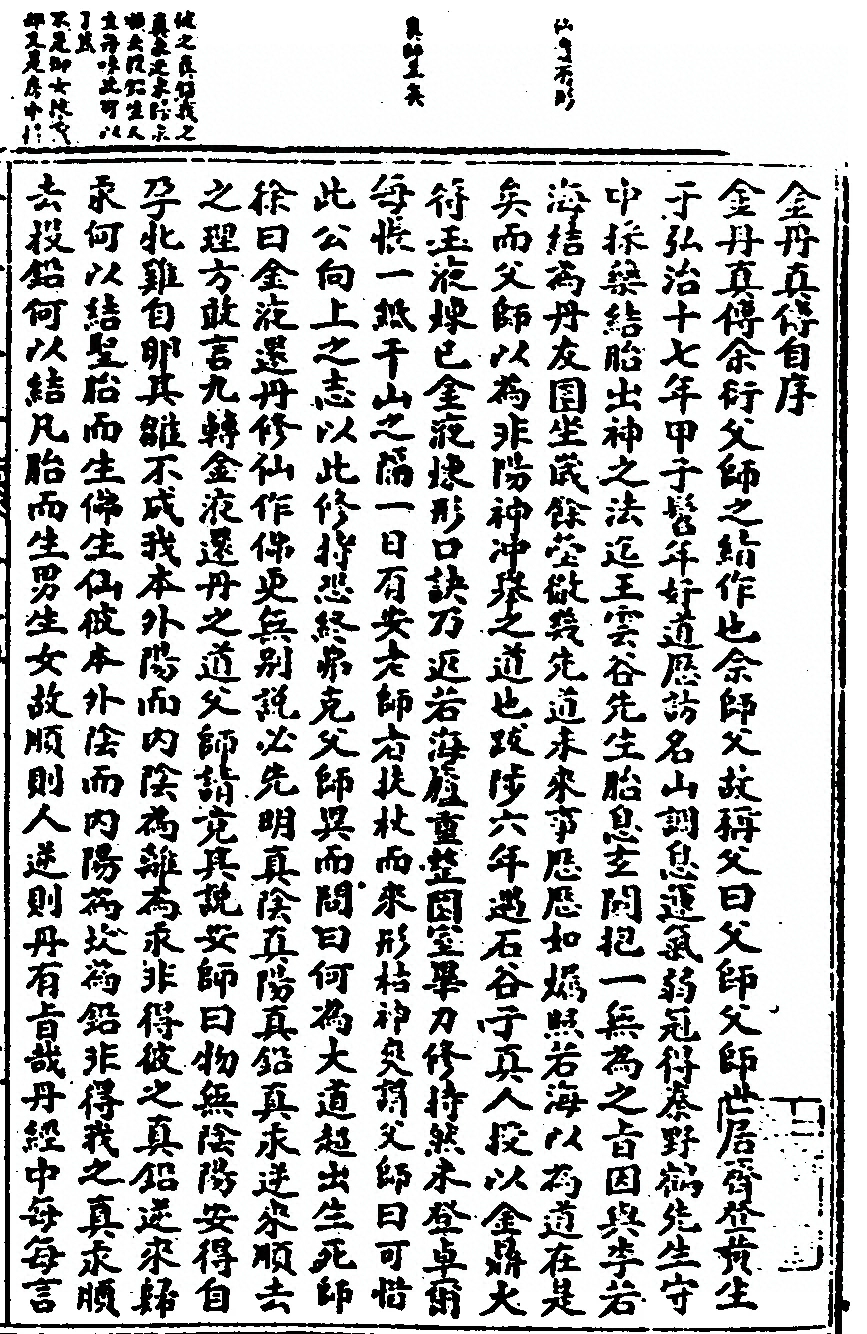 金丹真傳自序
金丹真傳余衍父師之緒作也余師父故稱父曰父師父師世居齊登黃生
于弘治十七年甲子髫年好道歷訪名山調息運氣弱冠得秦野鶴先生守
中採藥結胎出神之法迄王雲谷先生胎息玄關抱一無為之旨因與李若
海結為丹友圜坐歲餘瑩徹幾先道未來事歷歷如燭照若海以為道在是
矣而父師以為非陽神冲舉之道也跋涉六年遇石谷子真人投以金鼎火
符玉液煉己金液煉形口訣乃返若海廬重整圜室畢力修持然未登卓爾
每悵一紙千山之隔一日有安老師者扶杖而來形枯神爽謂父師曰可惜
此公向上之志以此修持恐終弗克父師異而問曰何為大道超出生死師
徐曰金液還丹修仙作佛更無別說必先明真陰真陽真鉛真汞逆來順去
之理方敢言九轉金液還丹之道父師請竟其說安師曰物無陰陽安得自
孕牝雞自卵其雛不成我本外陽而內陰為離為汞非得彼之真鉛逆來歸
汞何以結聖胎而生佛生仙彼本外陰而內陽為坎為鉛非得我之真汞順
去投鉛何以結凡胎而生男生女故順則人逆則丹有旨哉丹經中每每言
真師至矣
彼之真鉛我之